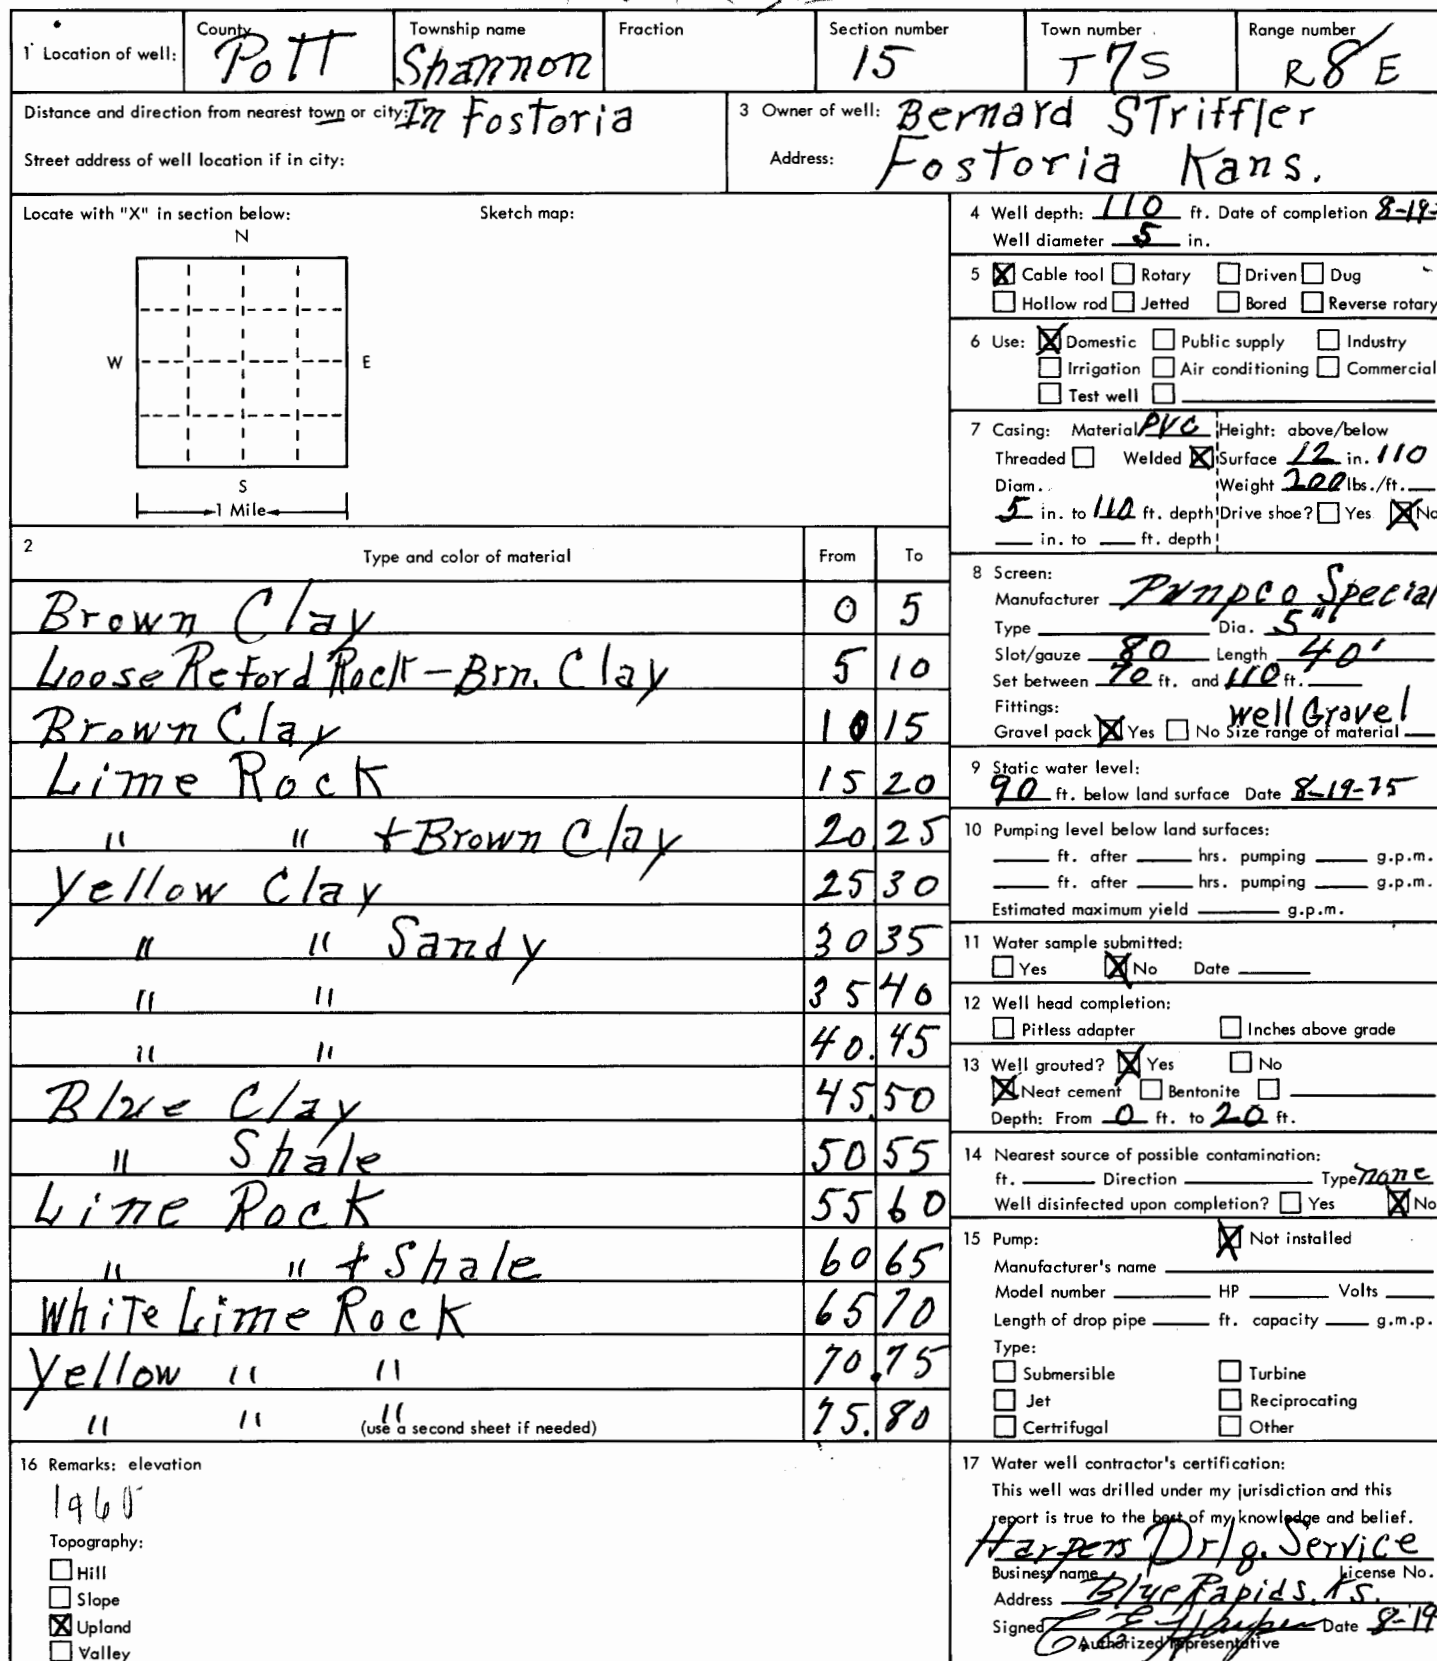 County Township name Fraction Section number Town number Range number
1 Location of well: Pott Shannon 15 T7S R8E
Distance and direction from nearest town or city: In Fostoria
Street address of well location if in city:
3 Owner of well: Bernard Striffler
Address: Fostoria Kans.
Locate with "X" in section below: Sketch map:
N
W E
S
1 Mile
2 Type and color of material From To
Brown Clay 0 5
Loose Reford Rock - Brn. Clay 5 10
Brown Clay 10 15
Lime Rock 15 20
" " + Brown Clay 20 25
Yellow Clay 25 30
" " Sandy 30 35
" " 35 40
" " 40. 45
Blue Clay 45 50
" Shale 50 55
Lime Rock 55 60
" " + Shale 60 65
White Lime Rock 65 70
Yellow " " 70 75
" " " 75. 80
(use a second sheet if needed)
4 Well depth: 110 ft. Date of completion 8-19-
Well diameter 5 in.
5 ☒ Cable tool ☐ Rotary ☐ Driven ☐ Dug
☐ Hollow rod ☐ Jetted ☐ Bored ☐ Reverse rotary
6 Use: ☒ Domestic ☐ Public supply ☐ Industry
☐ Irrigation ☐ Air conditioning ☐ Commercial
☐ Test well ☐
7 Casing: Material PVC Height: above/below
Threaded ☐ Welded ☒ Surface 12 in. 110
Diam. Weight 200 lbs./ft.
5 in. to 110 ft. depth Drive shoe? ☐ Yes ☒ No
in. to ft. depth
8 Screen:
Manufacturer Pumpco Special
Type Dia. 5"
Slot/gauze 80 Length 40'
Set between 70 ft. and 110 ft.
Fittings: Well Gravel
Gravel pack ☒ Yes ☐ No Size range of material
9 Static water level:
90 ft. below land surface Date 8-19-75
10 Pumping level below land surfaces:
ft. after hrs. pumping g.p.m.
ft. after hrs. pumping g.p.m.
Estimated maximum yield g.p.m.
11 Water sample submitted:
☐ Yes ☒ No Date
12 Well head completion:
☐ Pitless adapter ☐ Inches above grade
13 Well grouted? ☒ Yes ☐ No
☒ Neat cement ☐ Bentonite ☐
Depth: From 0 ft. to 20 ft.
14 Nearest source of possible contamination:
ft. Direction Type none
Well disinfected upon completion? ☐ Yes ☒ No
15 Pump: ☒ Not installed
Manufacturer's name
Model number HP Volts
Length of drop pipe ft. capacity g.m.p.
Type:
☐ Submersible ☐ Turbine
☐ Jet ☐ Reciprocating
☐ Certrifugal ☐ Other
16 Remarks: elevation
1960
Topography:
☐ Hill
☐ Slope
☒ Upland
☐ Valley
17 Water well contractor's certification:
This well was drilled under my jurisdiction and this
report is true to the best of my knowledge and belief.
Harpers Drlg. Service
Business name License No.
Address Blue Rapids, Ks.
Signed C E Harper Date 8-19
Authorized representative